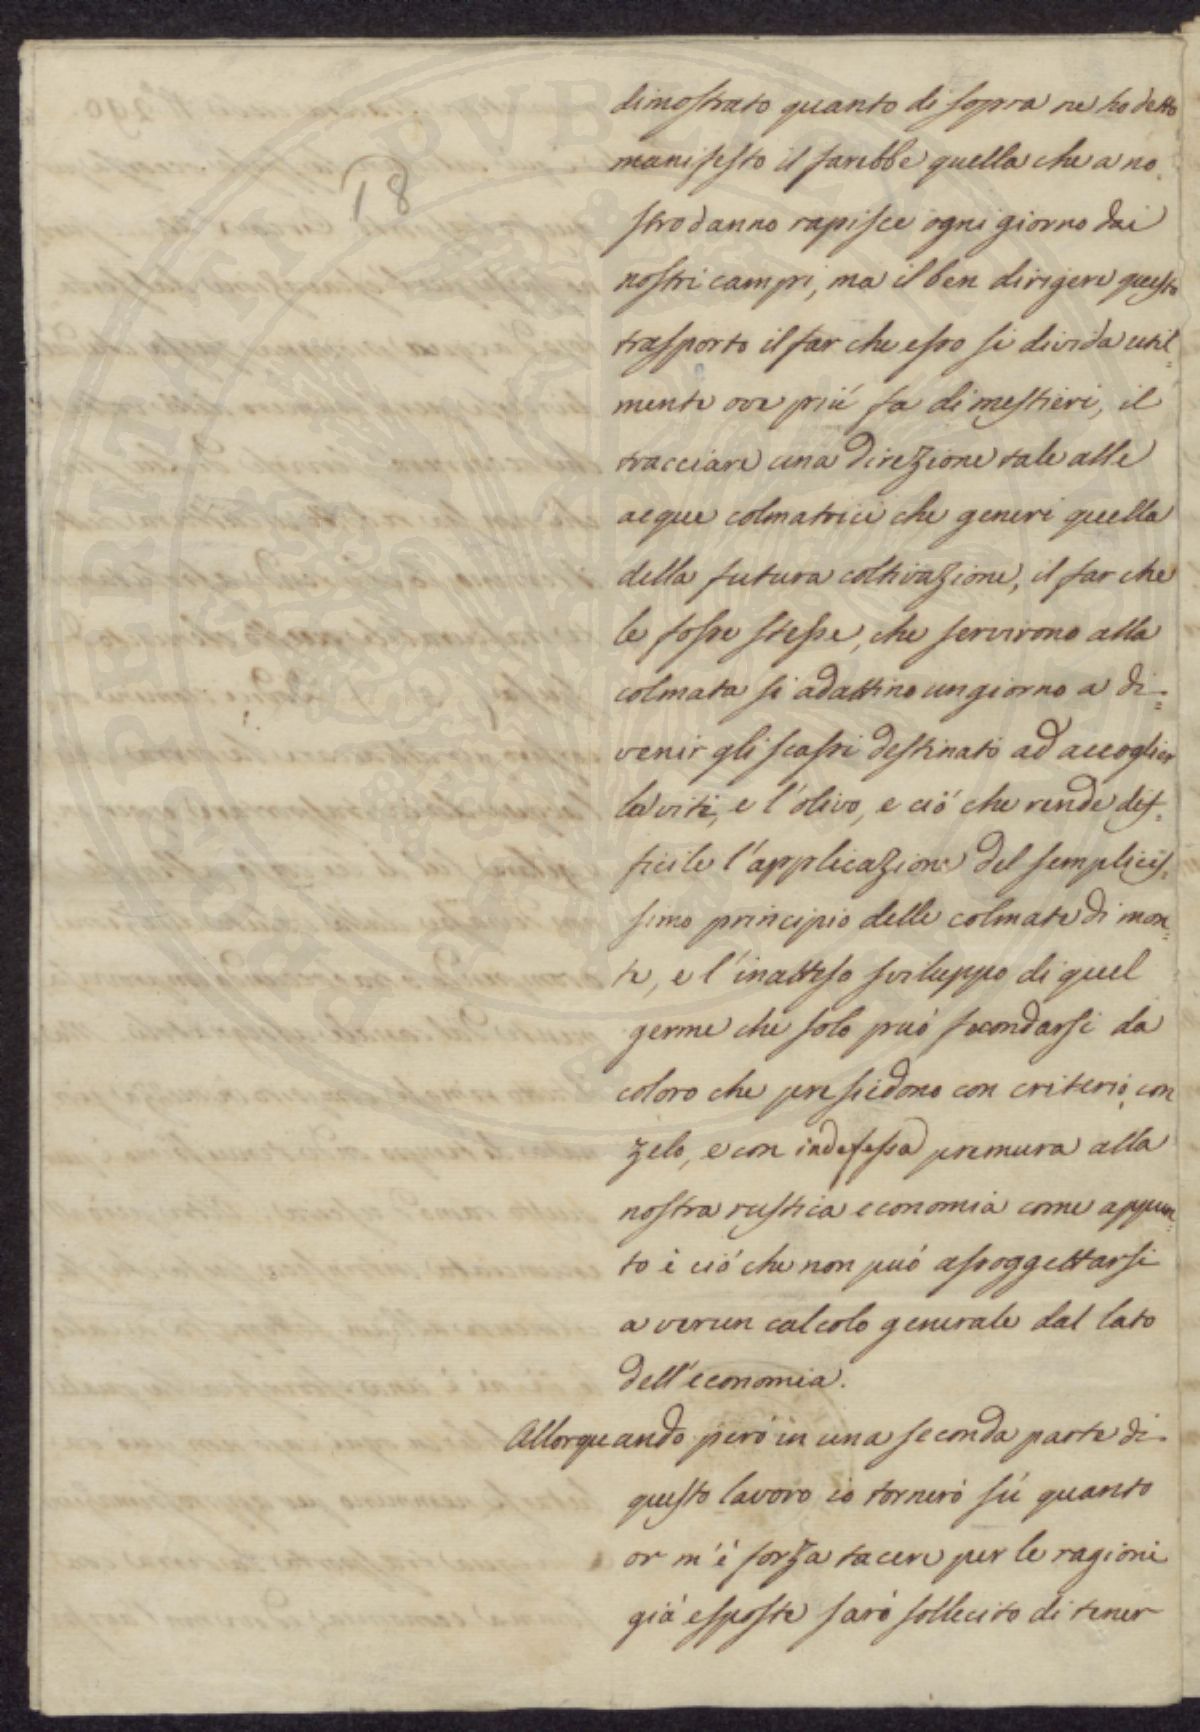 18
dimostrato quanto di sopra ne ho detto
manifesto il sarebbe quella che a no-
stro danno rapisce ogni giorno dai
nostri campi, ma il ben dirigere questo
trasporto il far che esso si divida util=
mente ove più fa di mestieri, il
tracciare una direzione tale alle
acque colmatrici che generi quella
della futura coltivazione, il far che
le fosse stesse, che servirono alla
colmata si adattino un giorno a di=
venir gli scassi destinato ad accoglier
la viti, e l'olivo, e ciò che rende dif=
ficile l'applicazione del semplicis=
simo principio delle colmate di mon=
te, e l'inatteso sviluppo di quel
germe che solo può fecondarsi da
coloro che presiedono con criterio, con
zelo, e con indefessa premura alla
nostra rustica economia come appun=
to è ciò che non può assoggettarsi
a verun calcolo generale dal lato
dell'economia.
Allorquando però in una seconda parte di
questo lavoro io tornerò sù quanto
or m'è forza tacere per le ragioni
già esposte sarò sollecito di tener